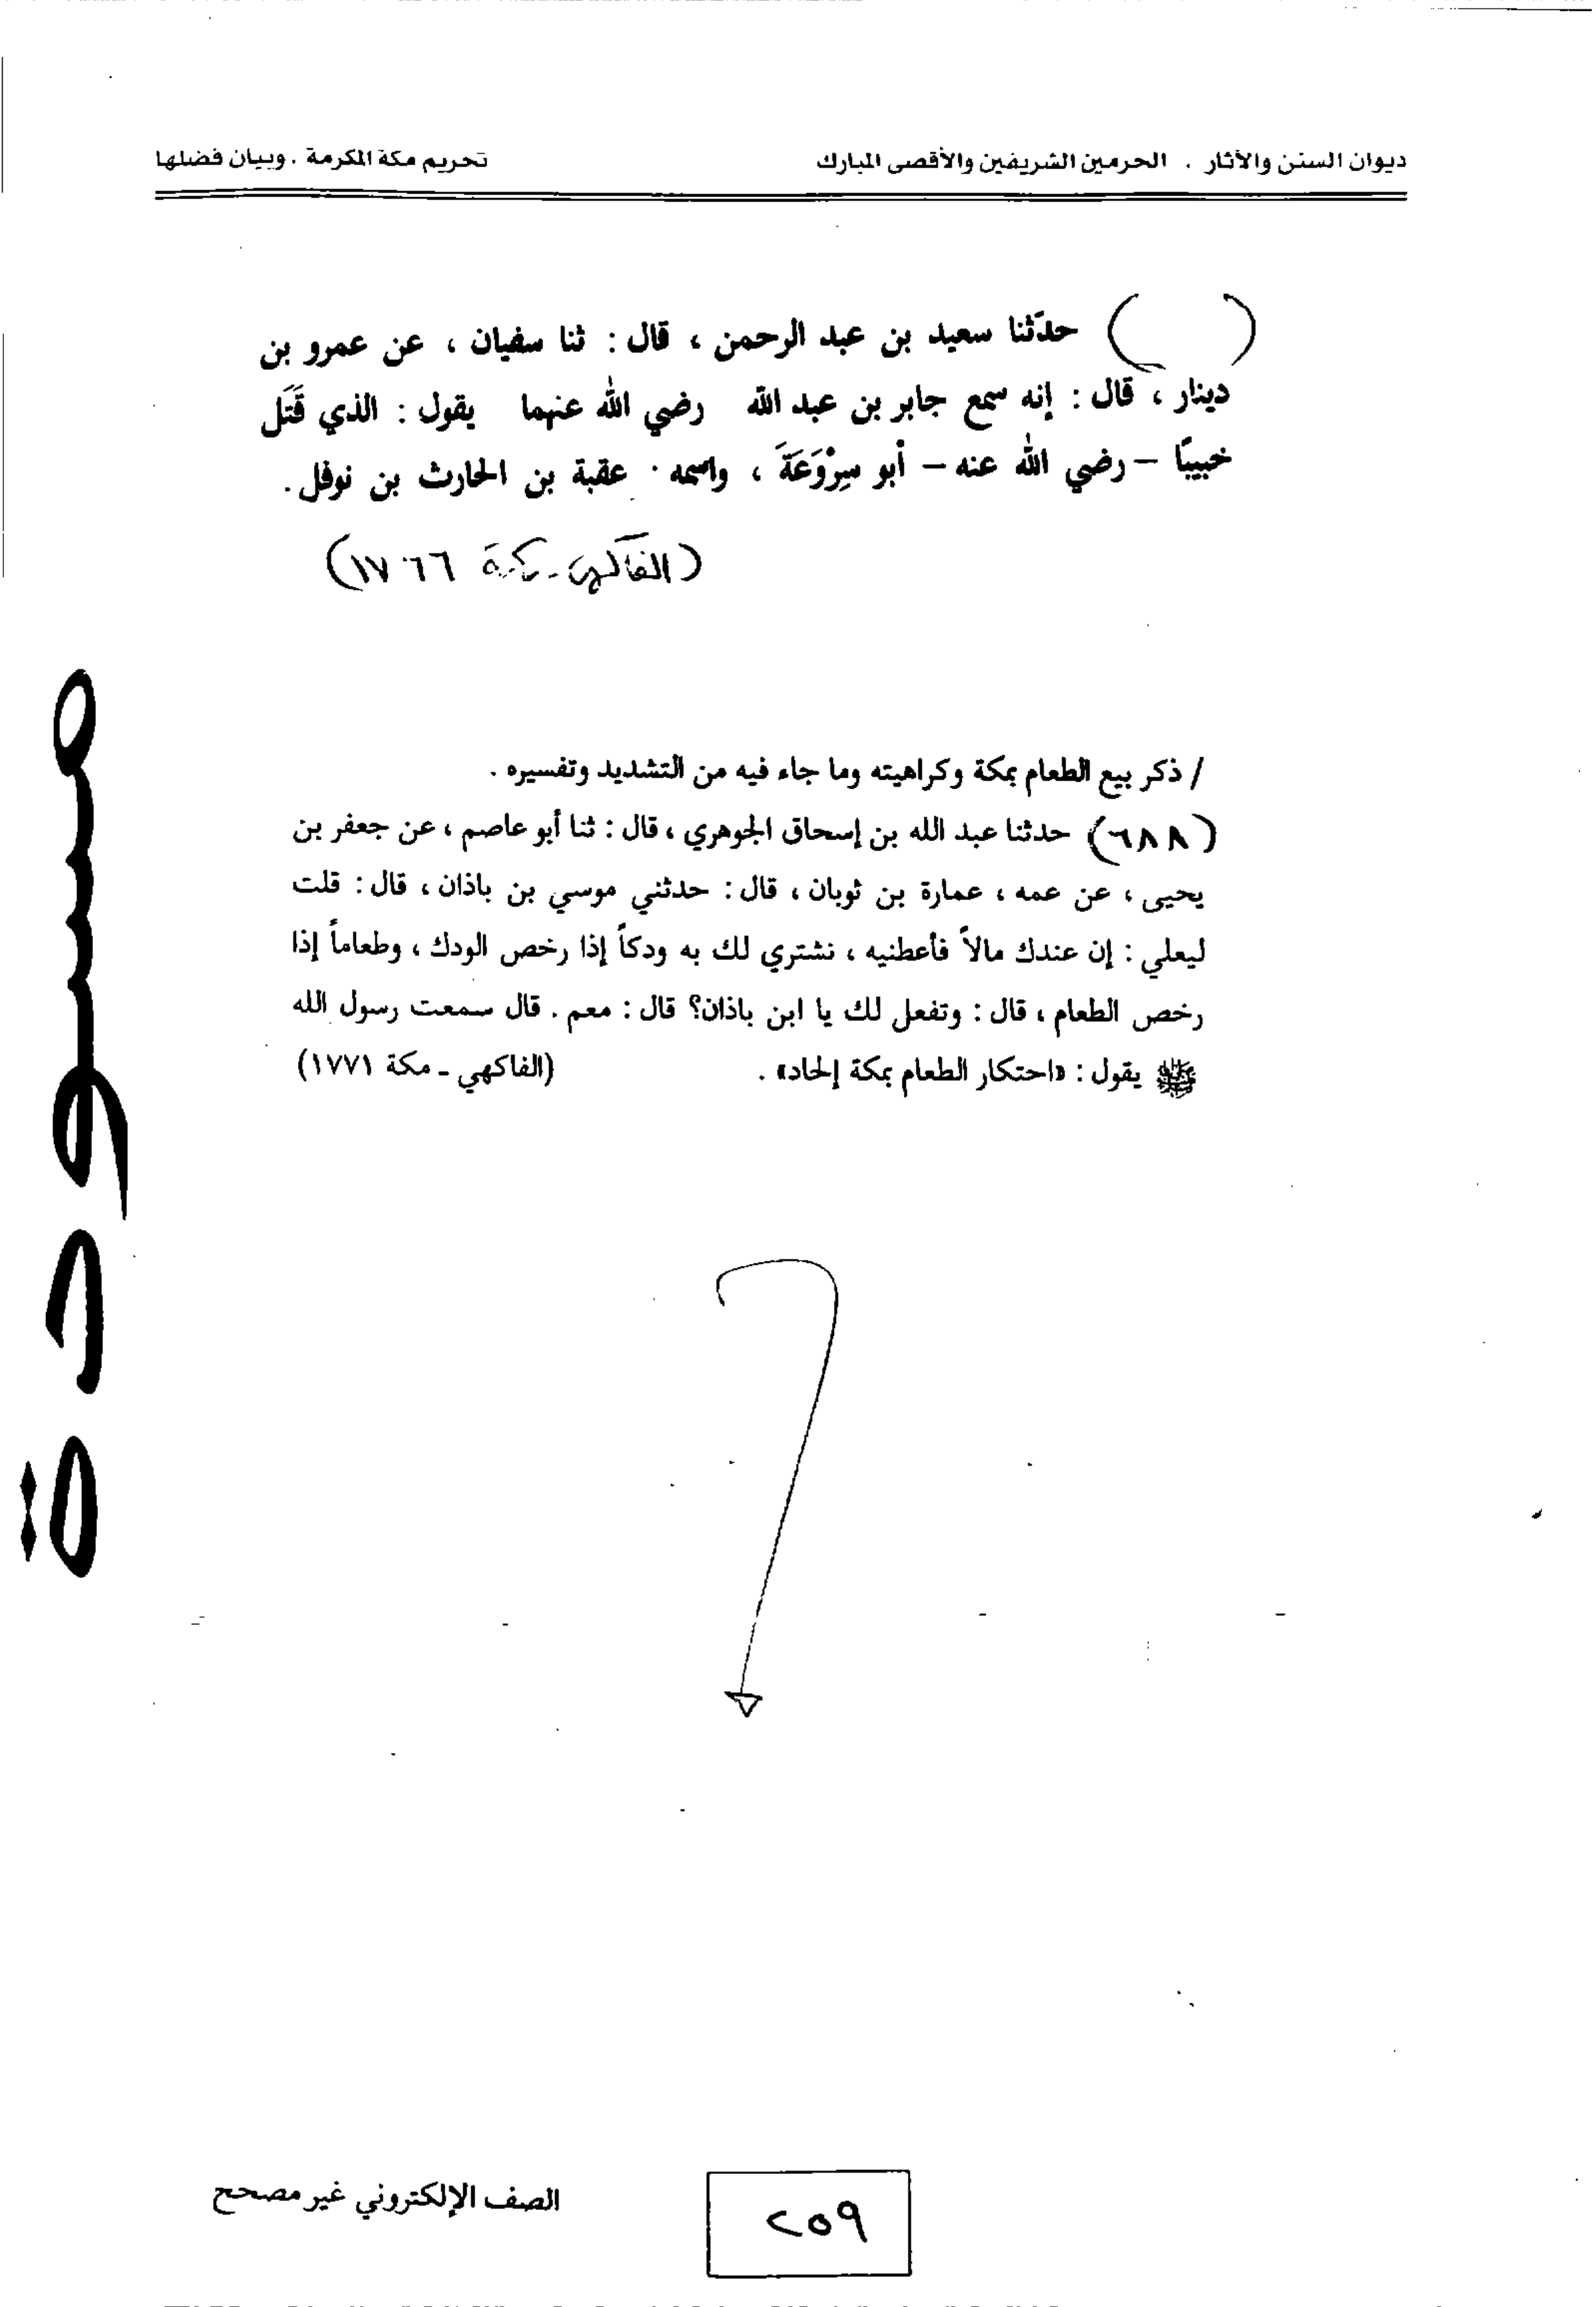 ديوان السنن والآثار . الحرمين الشريفين والأقصى المبارك
تحريم مكة المكرمة . وبيان فضلها
( ) حدّثنا سعيد بن عبد الرحمن ، قال : ثنا سفيان ، عن عمرو بن
دينار ، قال : إنه سمع جابر بن عبد الله رضي الله عنهما يقول : الذي قَتَل
خبيبًا – رضي الله عنه – أبو سِرْوَعَةَ ، واسمه · عقبة بن الحارث بن نوفل .
(الفاكهي - مكة ١٧٦٦)
/ ذكر بيع الطعام بمكة وكراهيته وما جاء فيه من التشديد وتفسيره .
(٦٨٨) حدثنا عبد الله بن إسحاق الجوهري ، قال : ثنا أبو عاصم ، عن جعفر بن
يحيى ، عن عمه ، عمارة بن ثوبان ، قال : حدثني موسي بن باذان ، قال : قلت
ليعلي : إن عندك مالاً فأعطنيه ، نشتري لك به ودكاً إذا رخص الودك ، وطعاماً إذا
رخص الطعام ، قال : وتفعل لك يا ابن باذان؟ قال : معم . قال سمعت رسول الله
ﷺ يقول : «احتكار الطعام بمكة إلحاد» . (الفاكهي - مكة ١٧٧١)
مسودة
الصف الإلكتروني غير مصحح
٢٥٩